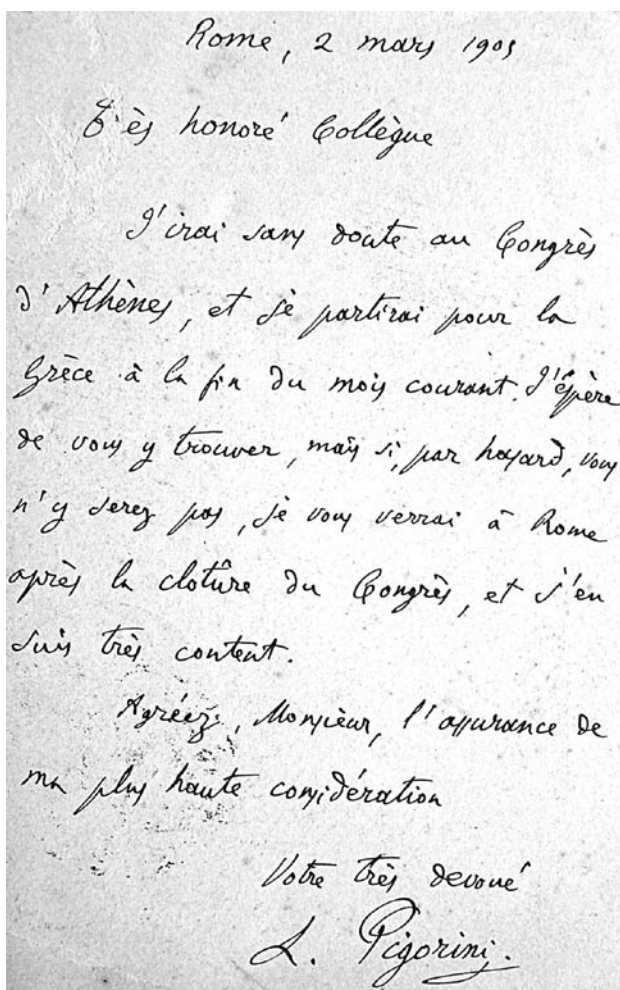 Rome, 2 mars 1905
Très honoré Collègue
J'irai sans doute au Congrès
d'Athènes, et je partirai pour la
Grèce à la fin du mois courant. J'éspère
de vous y trouver, mais si, par hasard, vous
n'y serez pas, je vous verrai à Rome
après la clotûre du Congrès, et j'en
suis très content.
Agréez, Monsieur, l'assurance de
ma plus haute considération
Votre très devoué
L. Pigorini.